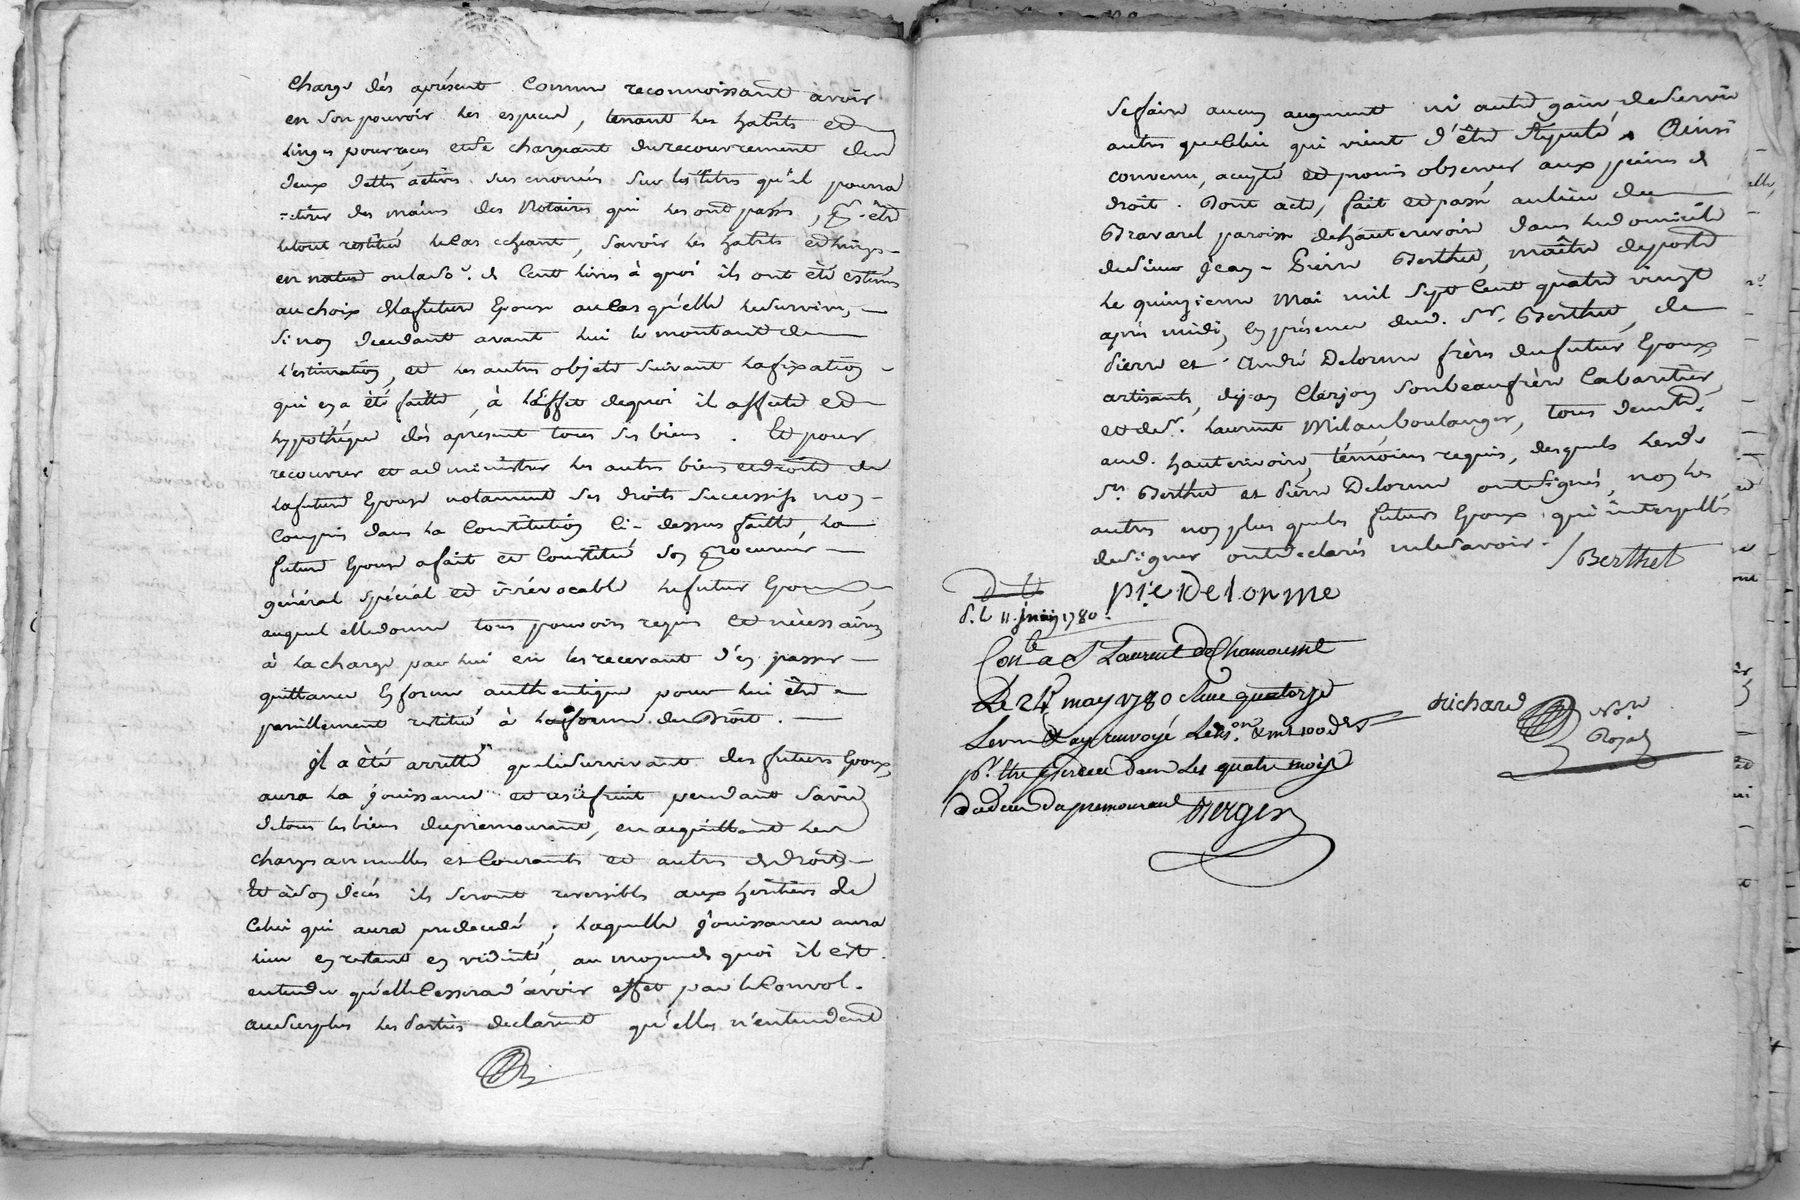 charge dés aprésent comme reconnoissant avoir
en son pouvoir les especes, tenant les habits et
linges pour reçus et se chargeant du recouvrement des
deux dettes actives sus enoncées sur les titres qu'il pourra
=etirer des mains des Notaires qui les ont passés, pr. être
le tout restitué le cas echeant, savoir les habits et linges
en nature ou la so.e de Cent livres à quoi ils ont été estimés
au choix de la future Epouse au cas qu'elle lui survive,
si non decedant avant lui le montant de
l'estimation, et les autres objets suivant la fixation
qui en a été faitte, à l'Effet dequoi il affecte et
hypothéque dès apresent tous ses biens. Et pour
recouvrer et administrer les autres biens et droits de
la future Epouse notament ses droits successifs non
compris dans la Constitution ci-dessus faitte, la
future Epouse a fait et Constitué son procureur
général spécial et irrévocable le futur Epoux,
auquel elle donne tous pouvoirs requis et nécessaires
à la charge par lui en les recevant d'en passer
quittance en forme authentique pour lui être
pareillement restitué à la forme du Droit.
Il a été arretté que le survivant des futurs Epoux,
aura la jouissance et usufruit pendant sa vie
de tous les biens du premourant, en acquittant les
charges annuelles et Courantes et autres de droit
et à son décés ils seront reversibles aux heritiers de
Celui qui aura predecedé; laquelle jouissance aura
lieu en restant en viduité, au moyen de quoi il est
entendu qu'elle Cessera d'avoir effet par le Convol.
au surplus les Parties declarent qu'elles n'entendent
se faire aucun augment ni autre gain de survie
autres que celui qui vient d'être stipulé. Ainsi
convenu, accepté et promis observer aux peines de
droit. Dont acte, fait et passé au lieu de
Bravard paroisse de hauterivoire dans le domicile
de sieur Jean-Pierre Berthet, maître de poste
Le quinzieme Mai mil sept Cent quatre vingt
après midi, en présence dud. Sr. Berthet, de
Pierre et André Delorme frères du futur Epoux
artisants, de jean Clerjon son beaufrère Cabaretier,
et de Sr. Laurent Milan boulanger, tous demts.
aud. hauterivoire, témoins requis, desquels lesds.
Srs. Berthet et Pierre Delorme ont signés, non les
autres non plus que les futurs Epoux qui interpellés
de signer ont declarés ne le savoir.
Berthet
pie Delorme
S. le 11. juin 1780.
Conle a St Laurent de Chamousset
Le 24 may 1780 Reçu quatorze
Livres & ay renvoyé
pr. être exercée dans Les quatre mois
du deces du premourant Verger
Richard
Nore
Royal